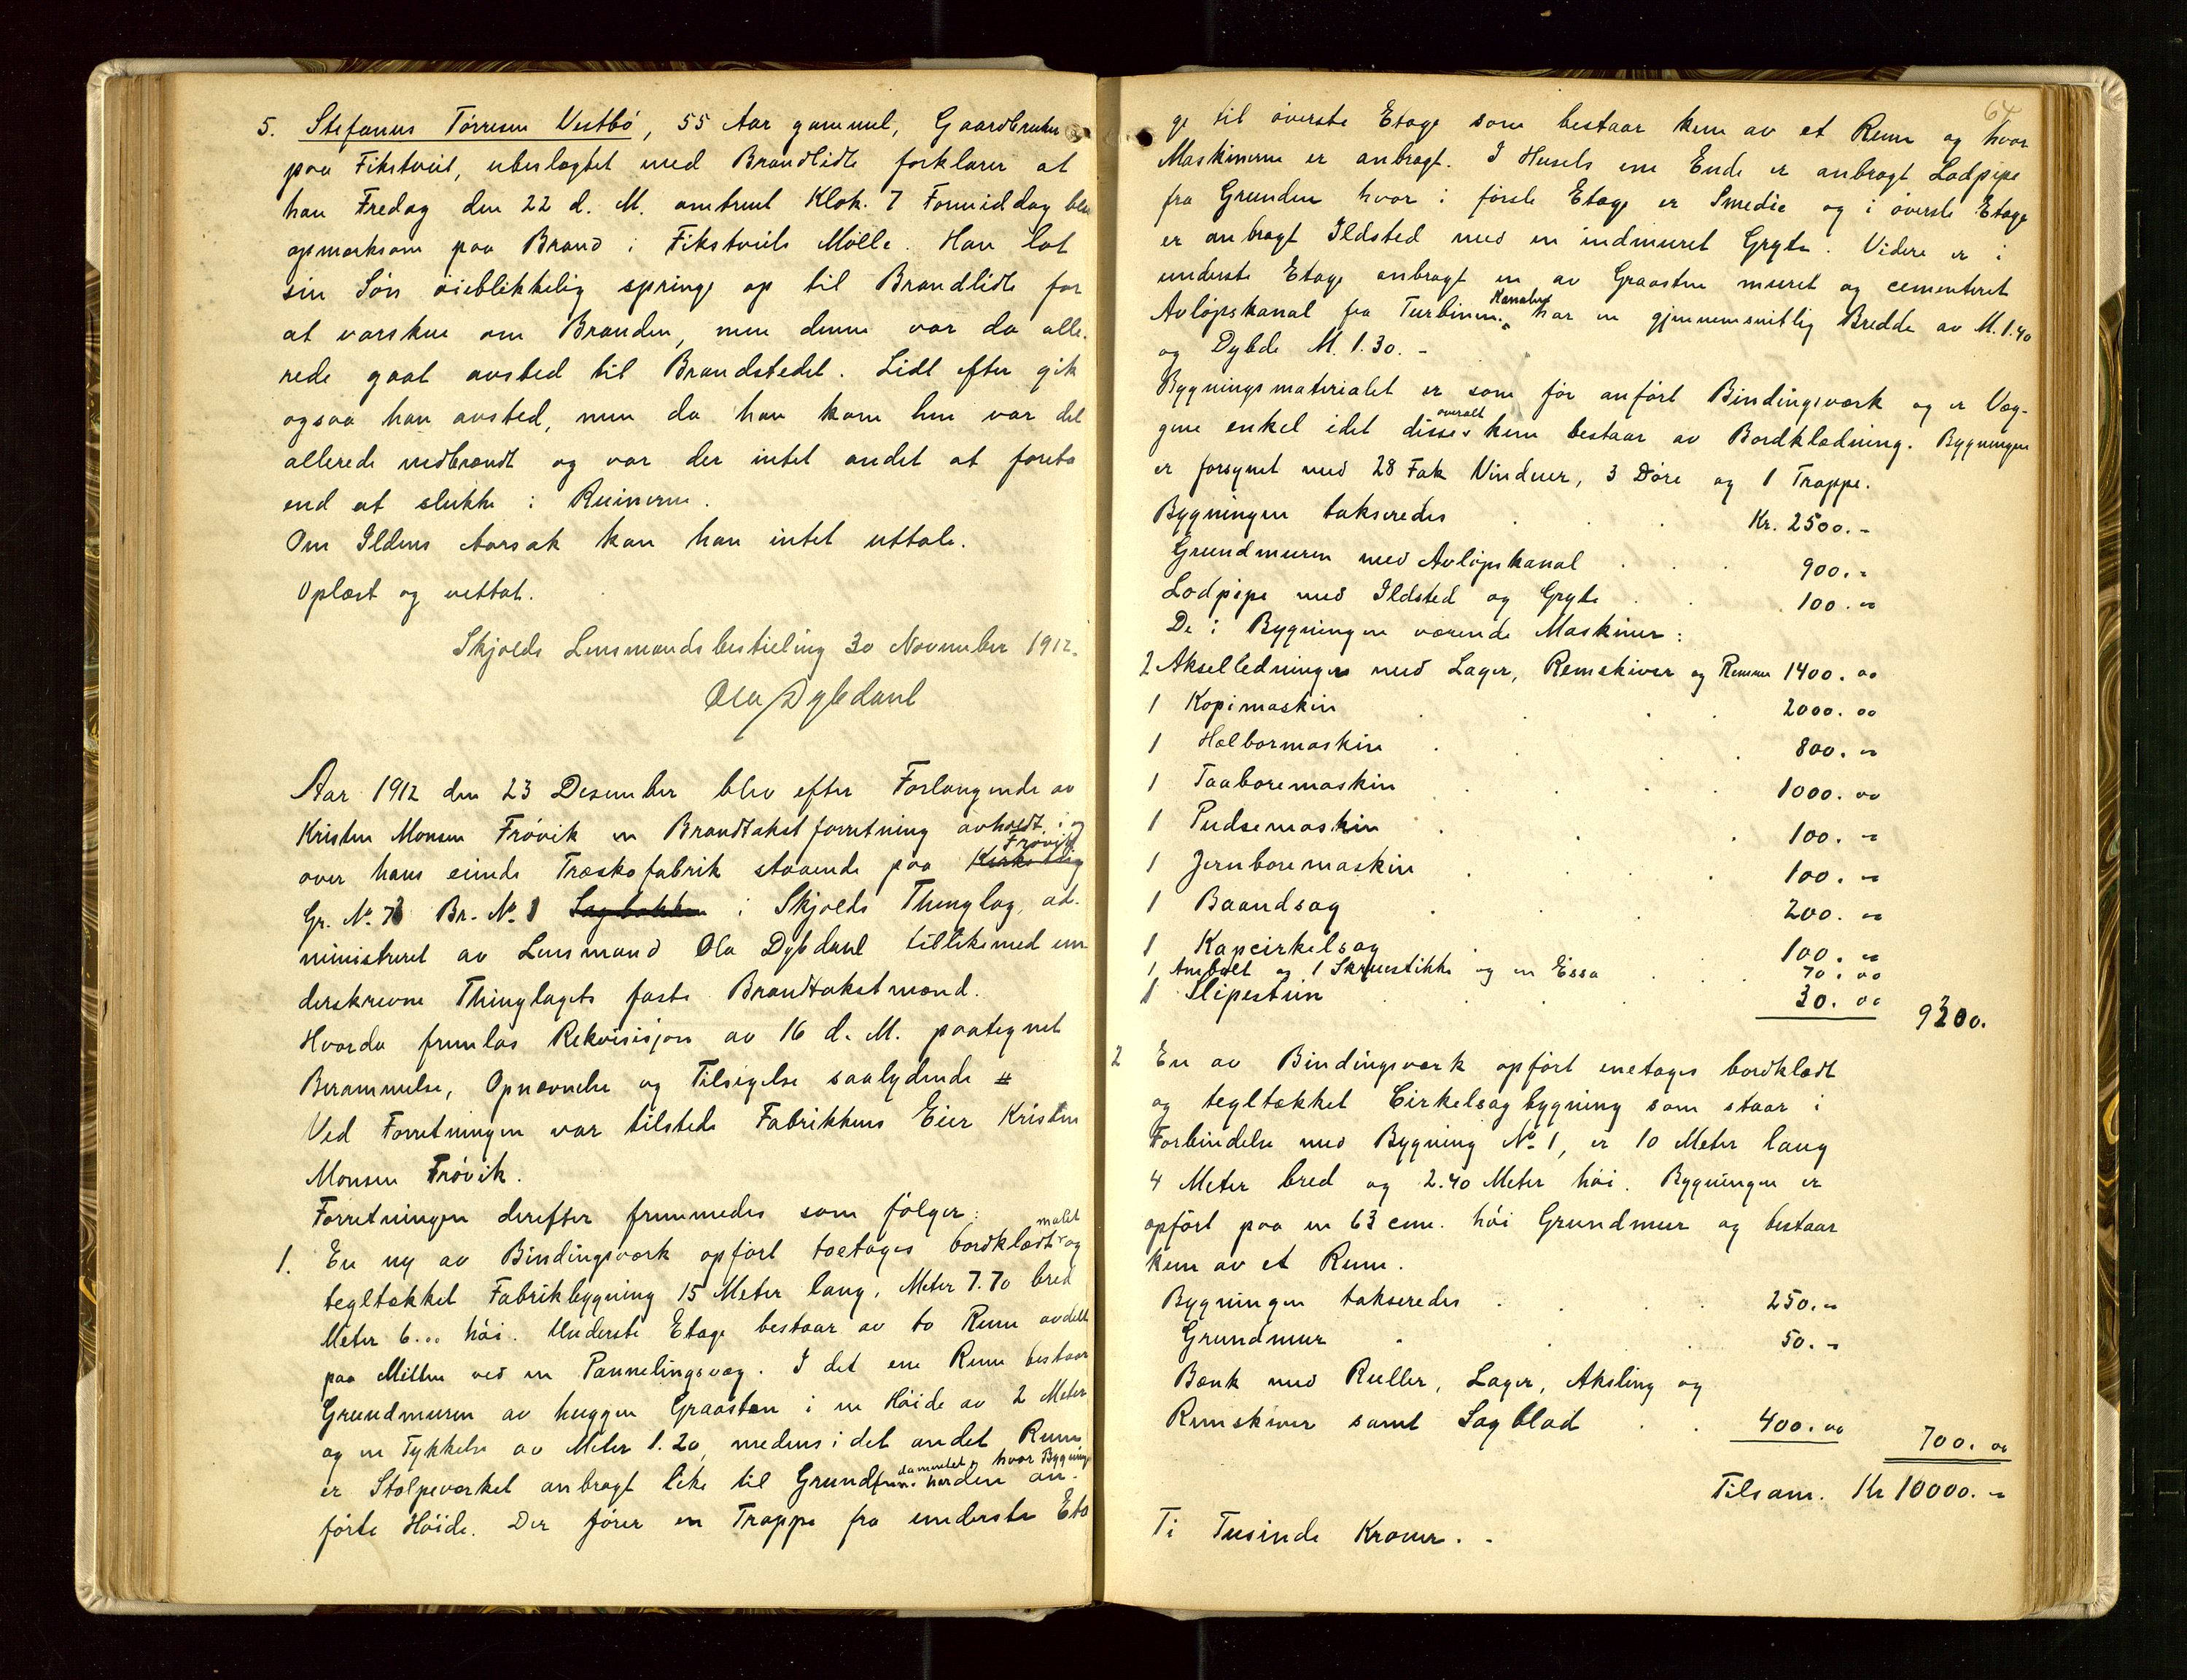 5. Stefanus Tørresen Vestbø, 55 Aar gammel, Gaardbruker
paa Fikstveit, ubeslægtet med Brandlidte forklarer at
han Fredag den 22 d. M. omtrent Klok. 7 Formiddag blev
opmerksom paa Brand i Fikstveits Mølle. Han lot
sin Søn øieblikkelig springe op til Brandlidte for
at varskue om Branden, men denne var da alle-
rede gaat avsted til Brandstedet. Lidt efter gik
ogsaa han avsted, men da han kom hen var det
allerede nedbrændt og var der intet andet at foreta
end at slukke i Ruinerne.
Om Ildens Aarsak kan han intet uttale.
Oplæst og vettat.
Skjolds Lensmandsbestilling 30 November 1912.
Ola Dybdahl
Aar 1912 den 23 Desember blev efter Forlangende av
Kristen Monsen Frøvik en Brandtakstforretning avholdt i og
over hans eiende Træskofabrik staaende paa Frøvik
Gr. No. 73 Br. No. 1 i Skjolds Thinglag, ad-
ministreret av Lensmand Ola Dybdahl tillikemed un-
derskrevne Thinglagets faste Brandtakstmænd.
Hvorda fremlas Rekvisisjon av 16 d. M. paategnet
Berammelse, Opnævnelse og Tilsigelse saalydende #
Ved Forretningen var tilstede Fabrikkens Eier Kristen
Monsen Frøvik.
Forretningen derefter fremmedes som følger:
1. En ny av Bindingsverk opført toetages bordklædt malet og
tegltækket Fabrikbygning 15 Meter lang, Meter 7.70 bred
Meter 6.00 høi. Underste Etage bestaar av to Rum avdelt
paa Midten ved en Pannelingsvæg. I det ene Rum bestaar
Grundmuren av huggen Graasten i en Høide av 2 Meter
og en Tykkelse av Meter 1.20, medens i det andet Rum
er Stolpeverket anbragt like til Grundfundamentet, hvor Bygningen har den an-
førte Høide. Der fører en Trappe fra underste Eta-
64
ge til øverste Etage som bestaar kun av et Rum og hvor
Maskinerne er anbragt. I Husets ene Ende er anbragt Lodpipe
fra Grunden hvor i første Etage er Smedie og i øverste Etage
er anbragt Ildsted med en indmuret Gryte. Videre er i
underste Etage anbragt en av Graasten muret og cementeret
Avløpskanal fra Turbinen. Kanalen har en gjennemsnitlig Bredde av M. 1.40
og Dybde M. 1.30. -
Bygningsmaterialet er som før anført Bindingsværk og er Væg-
gene enkel idet disse overalt kun bestaar av Bordklædning. Bygningen
er forsynet med 28 Fak Vinduer, 3 Døre og 1 Trappe.
Bygningen takseredes . . . Kr. 2500.-
Grundmuren med Avløpskanal . . . 900.-
Lodpipe med Ildsted og Gryte . . 100.-
De i Bygningen værende Maskiner:
2 Akselledninger med Lager, Remskiver og Remmer 1400.00
1 Kopimaskin . . . . 2000.00
1 Hælbormaskin . . . 800.-
1 Taaboremaskin . . . 1000.00
1 Pudsemaskin . . . 100.-
1 Jernboremaskin . . . 100.-
1 Baandsag . . . 200.-
1 Kapcirkelsag . . 100.-
1 Ambolt og 1 Skruestikke og en Essa . . 70.00
1 Slipestein . . . . 30.00 9300.
2 En av Bindingsværk opført enetages bordklædt
og tegltækket Cirkelsagbygning som staar i
Forbindelse med Bygning No. 1, er 10 Meter lang
4 Meter bred og 2.40 Meter høi. Bygningen er
opført paa en 63 cm. høi Grundmur og bestaar
kun av et Rum.
Bygningen takseredes . . . . 250.-
Grundmur . . . 50.-
Bænk med Ruller, Lager, Aksling og
Remskiver samt Sagblad . . 400.00 700.00
Tilsam. Kr 10000.-
Ti Tusinde Kroner. -